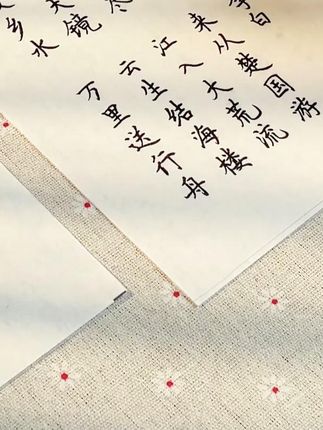 白
来从楚国游
尽 江入大荒流
天镜 云生结海楼
乡水 万里送行舟